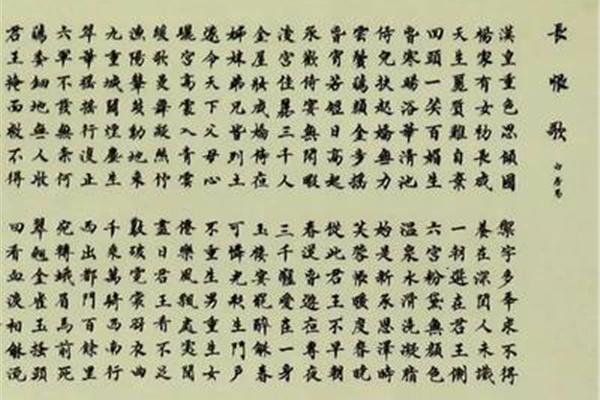 長恨歌
白居易
漢皇重色思傾國
御宇多年求不得
楊家有女初長成
養在深閨人未識
天生麗質難自棄
一朝選在君王側
回頭一笑百媚生
六宮粉黛無顏色
春寒賜浴華清池
溫泉水滑洗凝脂
侍兒扶起嬌無力
始是新承恩澤時
雲鬢花顏金步搖
芙蓉帳暖度春宵
春宵苦短日高起
從此君王不早朝
承歡侍宴無閒暇
春從春遊夜專夜
後宮佳麗三千人
三千寵愛在一身
金屋妝成嬌侍夜
玉樓宴罷醉和春
姊妹弟兄皆列土
可憐光彩生門戶
遂令天下父母心
不重生男重生女
驪宮高處入青雲
仙樂風飄處處聞
緩歌慢舞凝絲竹
盡日君王看不足
漁陽鼙鼓動地來
驚破霓裳羽衣曲
九重城闕煙塵生
千乘萬騎西南行
翠華搖搖行復止
西出都門百餘里
六軍不發無奈何
宛轉蛾眉馬前死
花鈿委地無人收
翠翹金雀玉搔頭
君王掩面救不得
回看血淚相和流